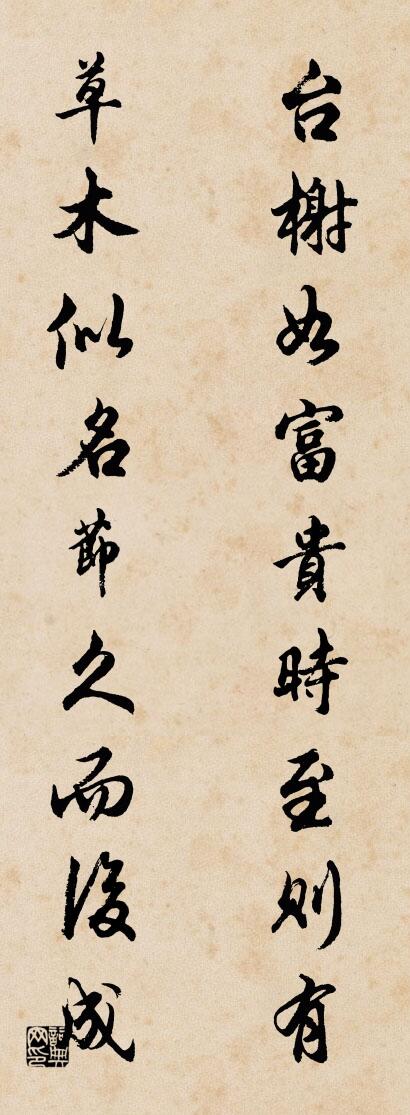 台榭如富貴時至則有
草木似名節久而後成